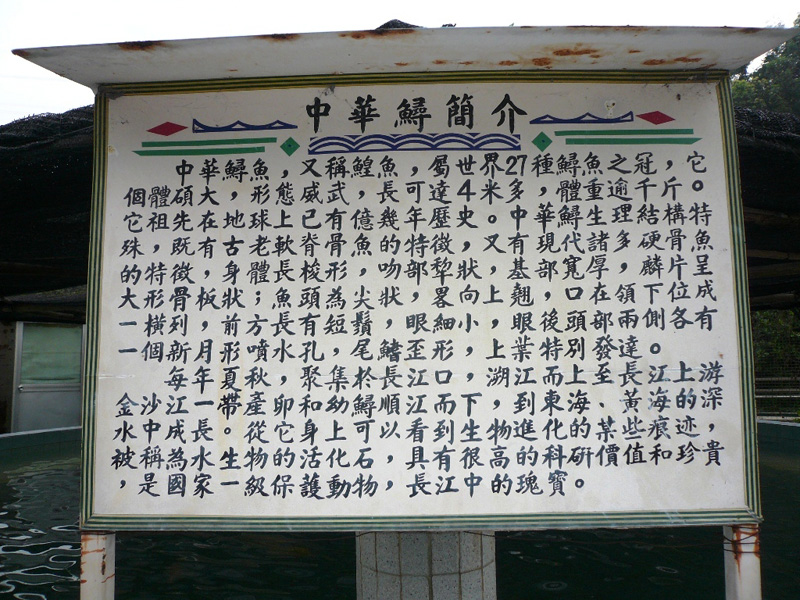 中華鱘簡介
中華鱘魚，又稱鰉魚，屬世界27種鱘魚之冠，它
個體碩大，形態威武，長可達4米多，體重逾千斤。
它祖先在地球上已有億幾年歷史。中華鱘生理結構特
殊，既有古老軟脊骨魚的特徵，又有現代諸多硬骨魚
的特徵，身體長梭形，吻部犁狀，基部寬厚，麟片呈
大形骨板狀；魚頭為尖狀，畧向上翹，口在領下位成
一橫列，前方長有短鬚，眼細小，眼後頭部兩側各有
一個新月形噴水孔，尾鰭歪形，上葉特別發達。
每年夏秋，聚集於長江口，溯江而上至長江上游
金沙江一帶產卵和幼鱘順江而下，到東海、黃海的深
水中成長。從它身上可以看到生物進化的某些痕迹，
被稱為水生物的活化石，具有很高的科硏價值和珍貴
，是國家一級保護動物，長江中的瑰寶。